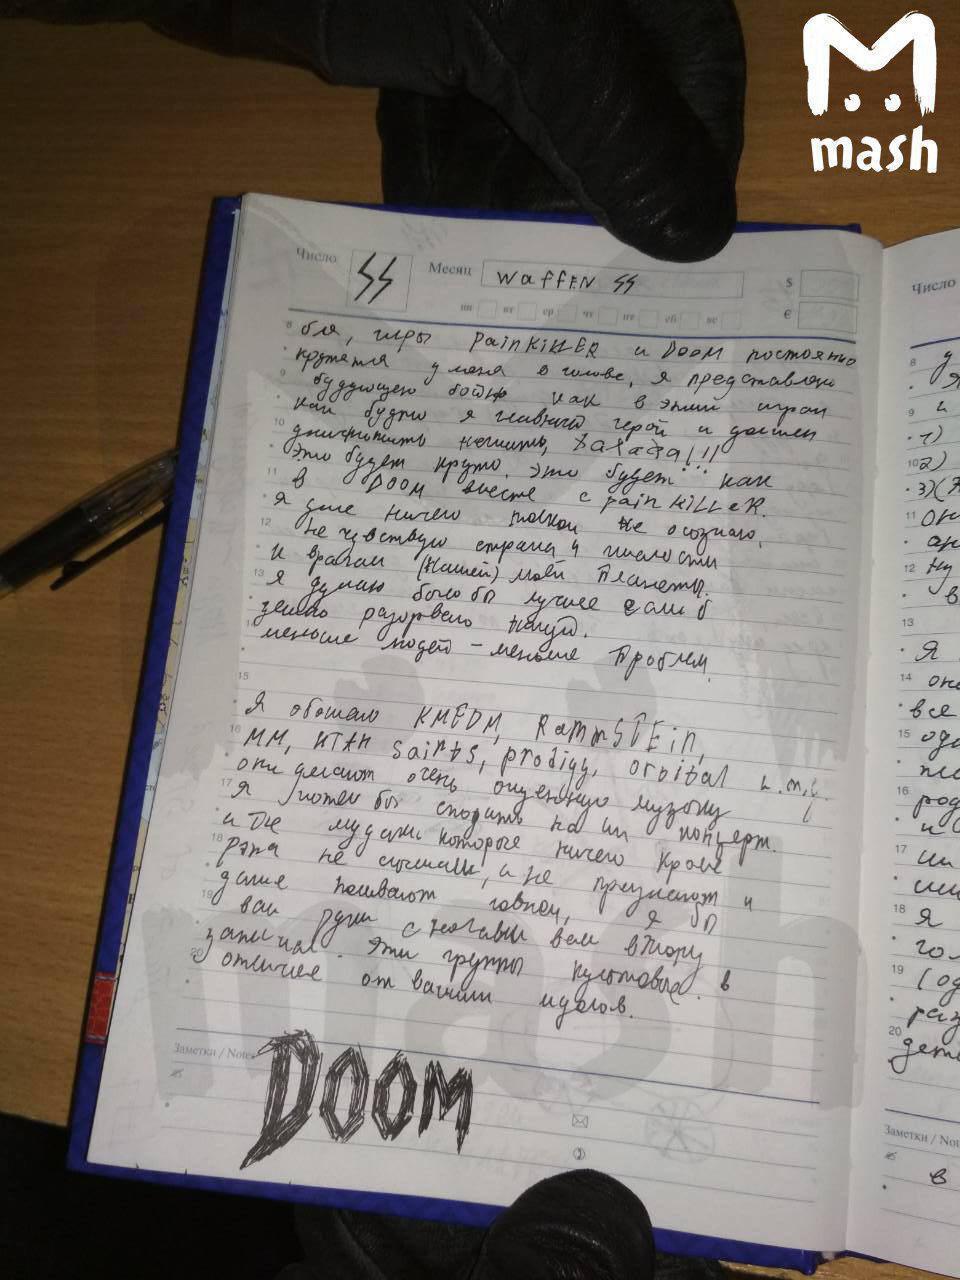 mash
Число
ᛋᛋ
Месяц
Waffen ᛋᛋ
$
€
пн вт ср чт пт сб вс
8 бля, игры PainKiLLER и DOOM постоянно
крутятся у меня в голове, я представляю
9 будующею бойню как в этих играх
как будто я главный герой и должен
10 нечисть, Хахаха!!!
это будет круто. это будет как
11 в DOOM вместе с pain KiLLeR.
я уже ничего толком не осознаю,
12 Не чувствую страха и жалости
к врагам (нашей) моей Планеты.
13 Я думаю было бы лучше если б
землю разорвало нахуй.
14 меньше людей – меньше Проблем.
15
Я обожаю KMFDM, RammSTEin,
16 MM, saints, prodigy, orbital и.т.д.
они делают очень охуенную музыку
17 Я хотел бы сходить на их концерт.
а те мудаки которые ничего кроме
18 рэпа не слышали, и не признают и
даже называют говном, я бы
19 вам руки с ногами вам в жопу
запихал. Эти группы культовые. в
20 отличие от ваших идолов.
Заметки / Notes
DOOM
Число
8 у
Я
9 и
1)
10 2)
3)
11 он
12 ну
в
13
Я
14 она
все
15
16 род
и
17 им
18 я
19 (од
раз
20 дет
Заметки / No
в
mash